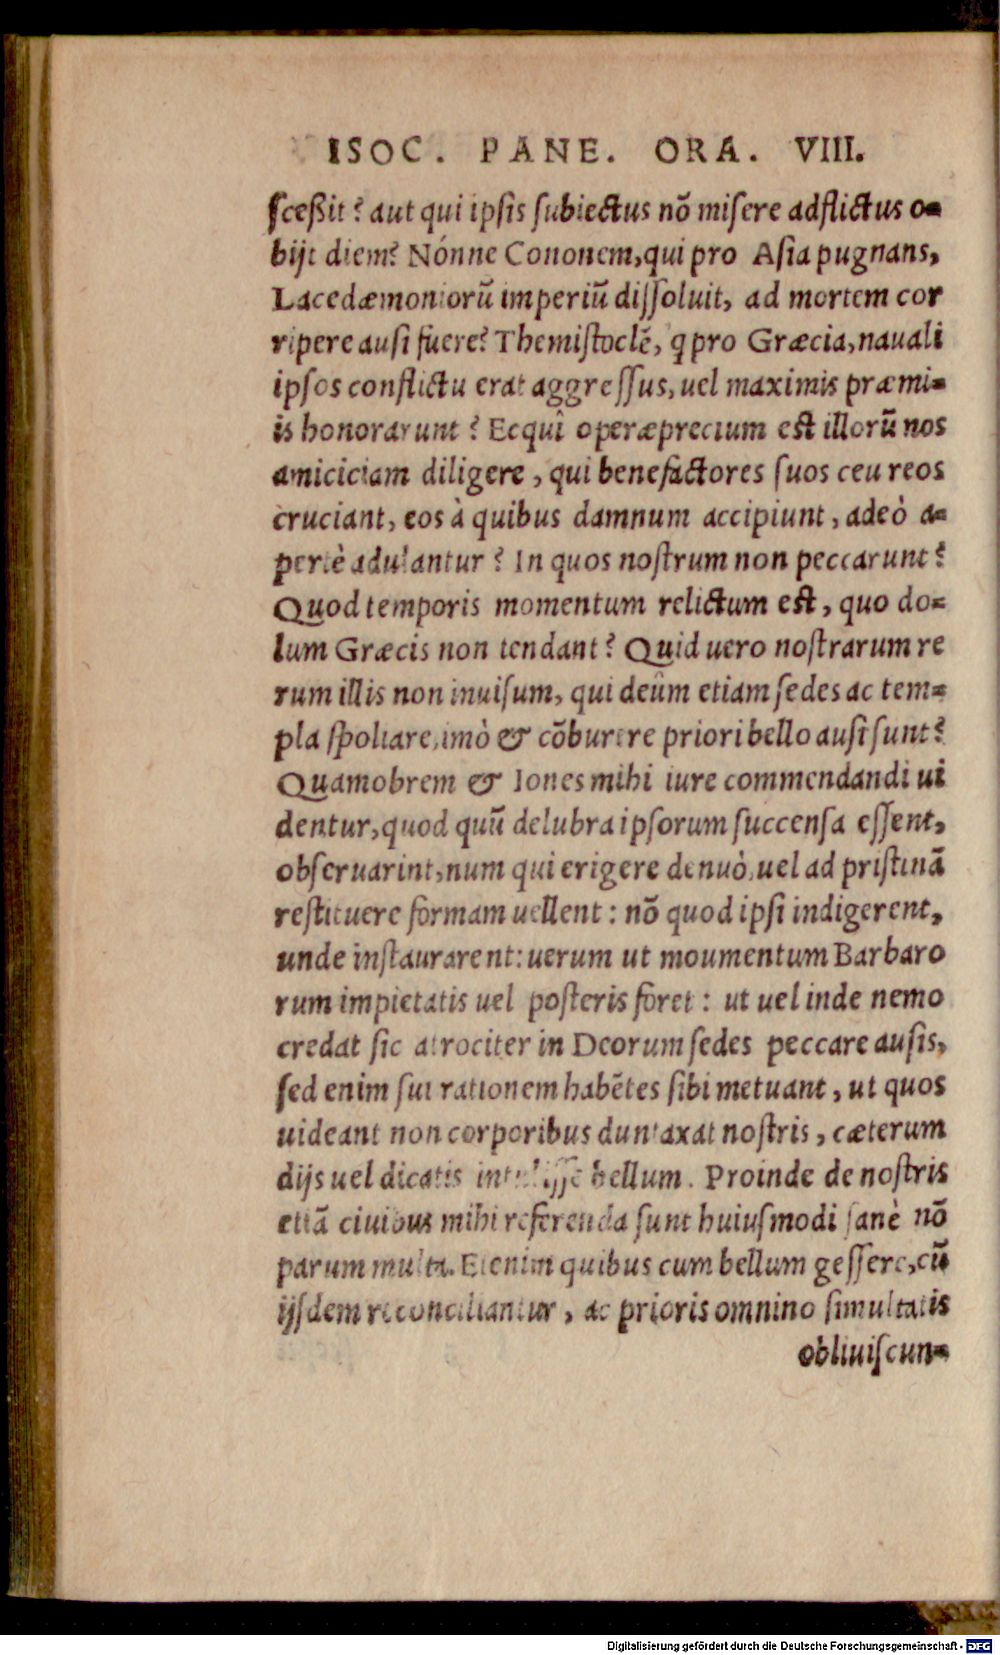 ISOC. PANE. ORA. VIII.
ſceßit? aut qui ipſis ſubiectus nõ miſere adflictus o=
bijt diem? Nónne Cononem, qui pro Aſia pugnans,
Lacedæmoniorũ imperiũ diſſoluit, ad mortem cor
ripere auſi fuere? Themiſtoclẽ, q pro Græcia, nauali
ipſos conflictu erat aggreſſus, uel maximis præmi=
is honorarunt? Ecquî operæprecium eſt illorũ nos
amiciciam diligere, qui benefactores ſuos ceu reos
cruciant, eos à quibus damnum accipiunt, adeò a=
pertè adulantur? In quos noſtrum non peccarunt?
Quod temporis momentum relictum eſt, quo do=
lum Græcis non tendant? Quid uero noſtrarum re
rum illis non inuiſum, qui deûm etiam ſedes ac tem=
pla ſpoliare, imò & cõburere priori bello auſi ſunt?
Quamobrem & Iones mihi iure commendandi ui
dentur, quod quũ delubra ipſorum ſuccenſa eſſent,
obſeruarint, num qui erigere denuò, uel ad priſtinã
reſtituere formam uellent: nõ quod ipſi indigerent,
unde inſtaurarent: uerum ut moumentum Barbaro
rum impietatis uel poſteris foret: ut uel inde nemo
credat ſic atrociter in Deorum ſedes peccare auſis,
ſed enim ſui rationem habẽtes ſibi metuant, ut quos
uideant non corporibus duntaxat noſtris, cæterum
dijs uel dicatis intuliſſe bellum. Proinde de noſtris
etiã ciuibus mihi referenda ſunt huiuſmodi ſanè nõ
parum multa. Etenim quibus cum bellum geſſere, cũ
ijſdem reconciliantur, ac prioris omnino ſimultatis
obliuiſcun=
Digitalisierung gefördert durch die Deutsche Forschungsgemeinschaft - DFG